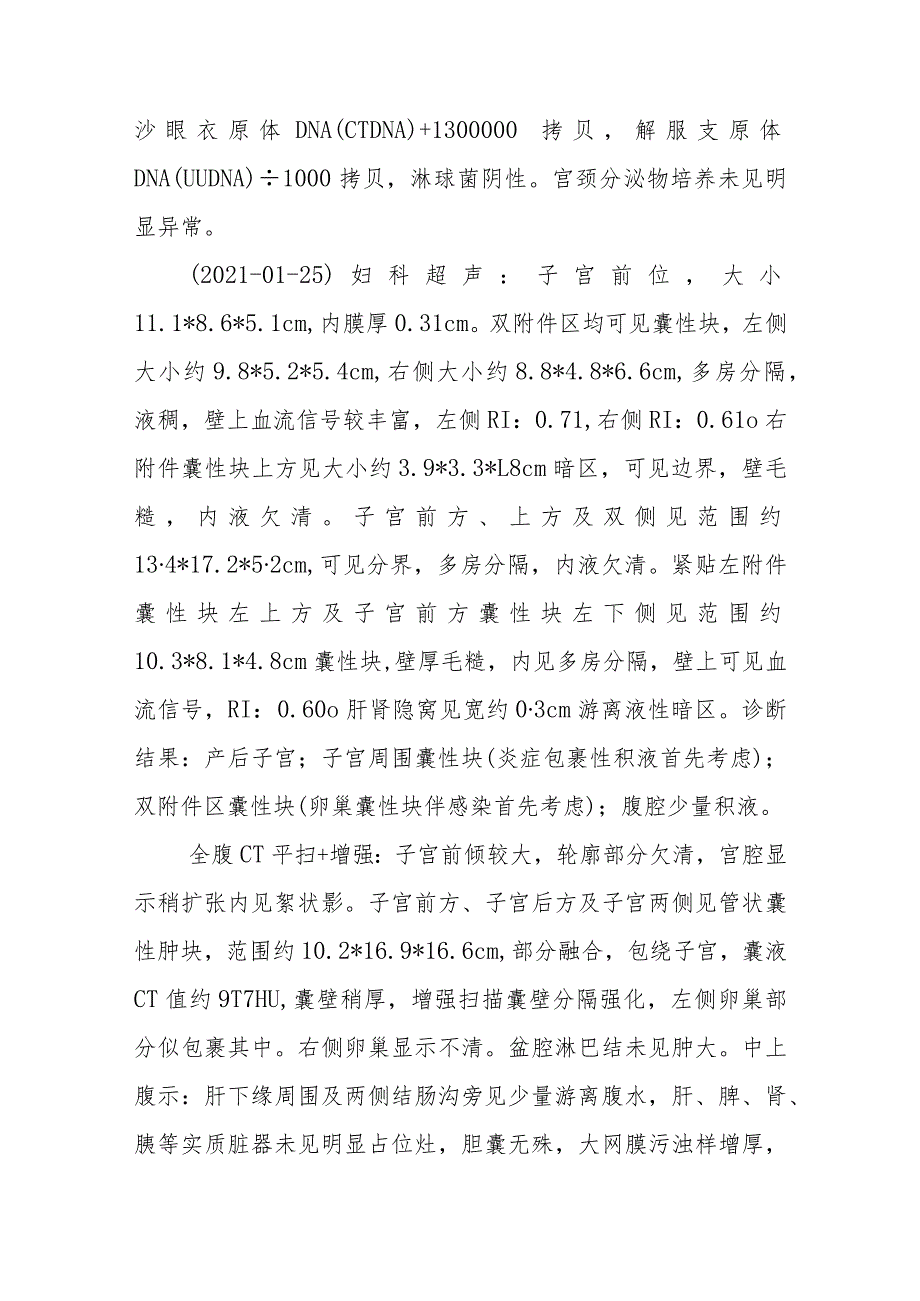 沙眼衣原体 DNA(CTDNA)+1300000 拷贝，解服支原体
DNA(UUDNA)÷1000 拷贝，淋球菌阴性。宫颈分泌物培养未见明
显异常。
(2021-01-25)妇科超声：子宫前位，大小
11.1*8.6*5.1cm,内膜厚 0.31cm。双附件区均可见囊性块，左侧
大小约 9.8*5.2*5.4cm,右侧大小约 8.8*4.8*6.6cm,多房分隔，
液稠，壁上血流信号较丰富，左侧 RI：0.71,右侧 RI：0.61o 右
附件囊性块上方见大小约 3.9*3.3*L8cm 暗区，可见边界，壁毛
糙，内液欠清。子宫前方、上方及双侧见范围约
13·4*17.2*5·2cm,可见分界，多房分隔，内液欠清。紧贴左附件
囊性块左上方及子宫前方囊性块左下侧见范围约
10.3*8.1*4.8cm 囊性块,壁厚毛糙，内见多房分隔，壁上可见血
流信号，RI：0.60o 肝肾隐窝见宽约 0·3cm 游离液性暗区。诊断
结果：产后子宫；子宫周围囊性块(炎症包裹性积液首先考虑)；
双附件区囊性块(卵巢囊性块伴感染首先考虑)；腹腔少量积液。
全腹 CT 平扫+增强：子宫前倾较大，轮廓部分欠清，宫腔显
示稍扩张内见絮状影。子宫前方、子宫后方及子宫两侧见管状囊
性肿块，范围约 10.2*16.9*16.6cm,部分融合，包绕子宫，囊液
CT 值约 9T7HU,囊壁稍厚，增强扫描囊壁分隔强化，左侧卵巢部
分似包裹其中。右侧卵巢显示不清。盆腔淋巴结未见肿大。中上
腹示：肝下缘周围及两侧结肠沟旁见少量游离腹水，肝、脾、肾、
胰等实质脏器未见明显占位灶，胆囊无殊，大网膜污浊样增厚，